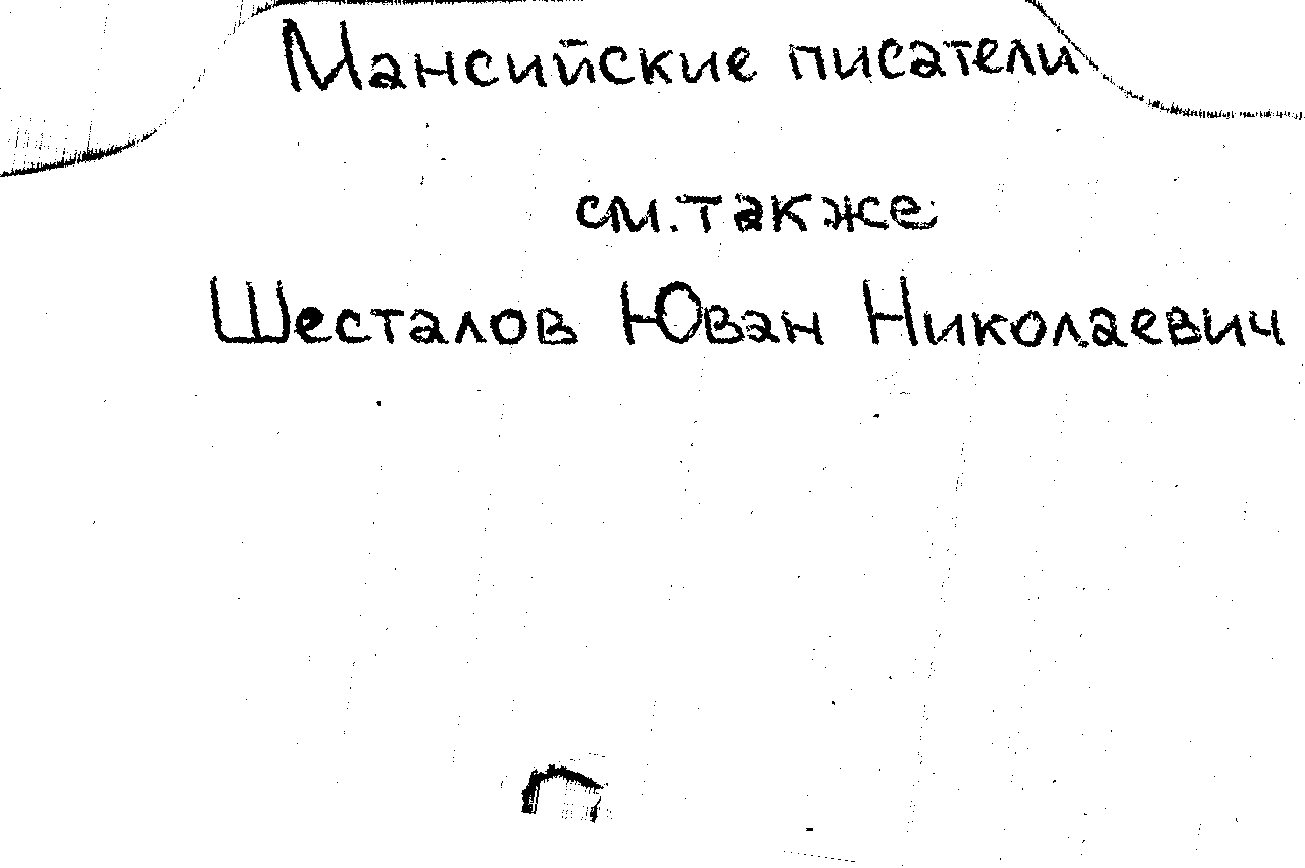 Мансийские писатели
см. также
Шесталов Юван Николаевич